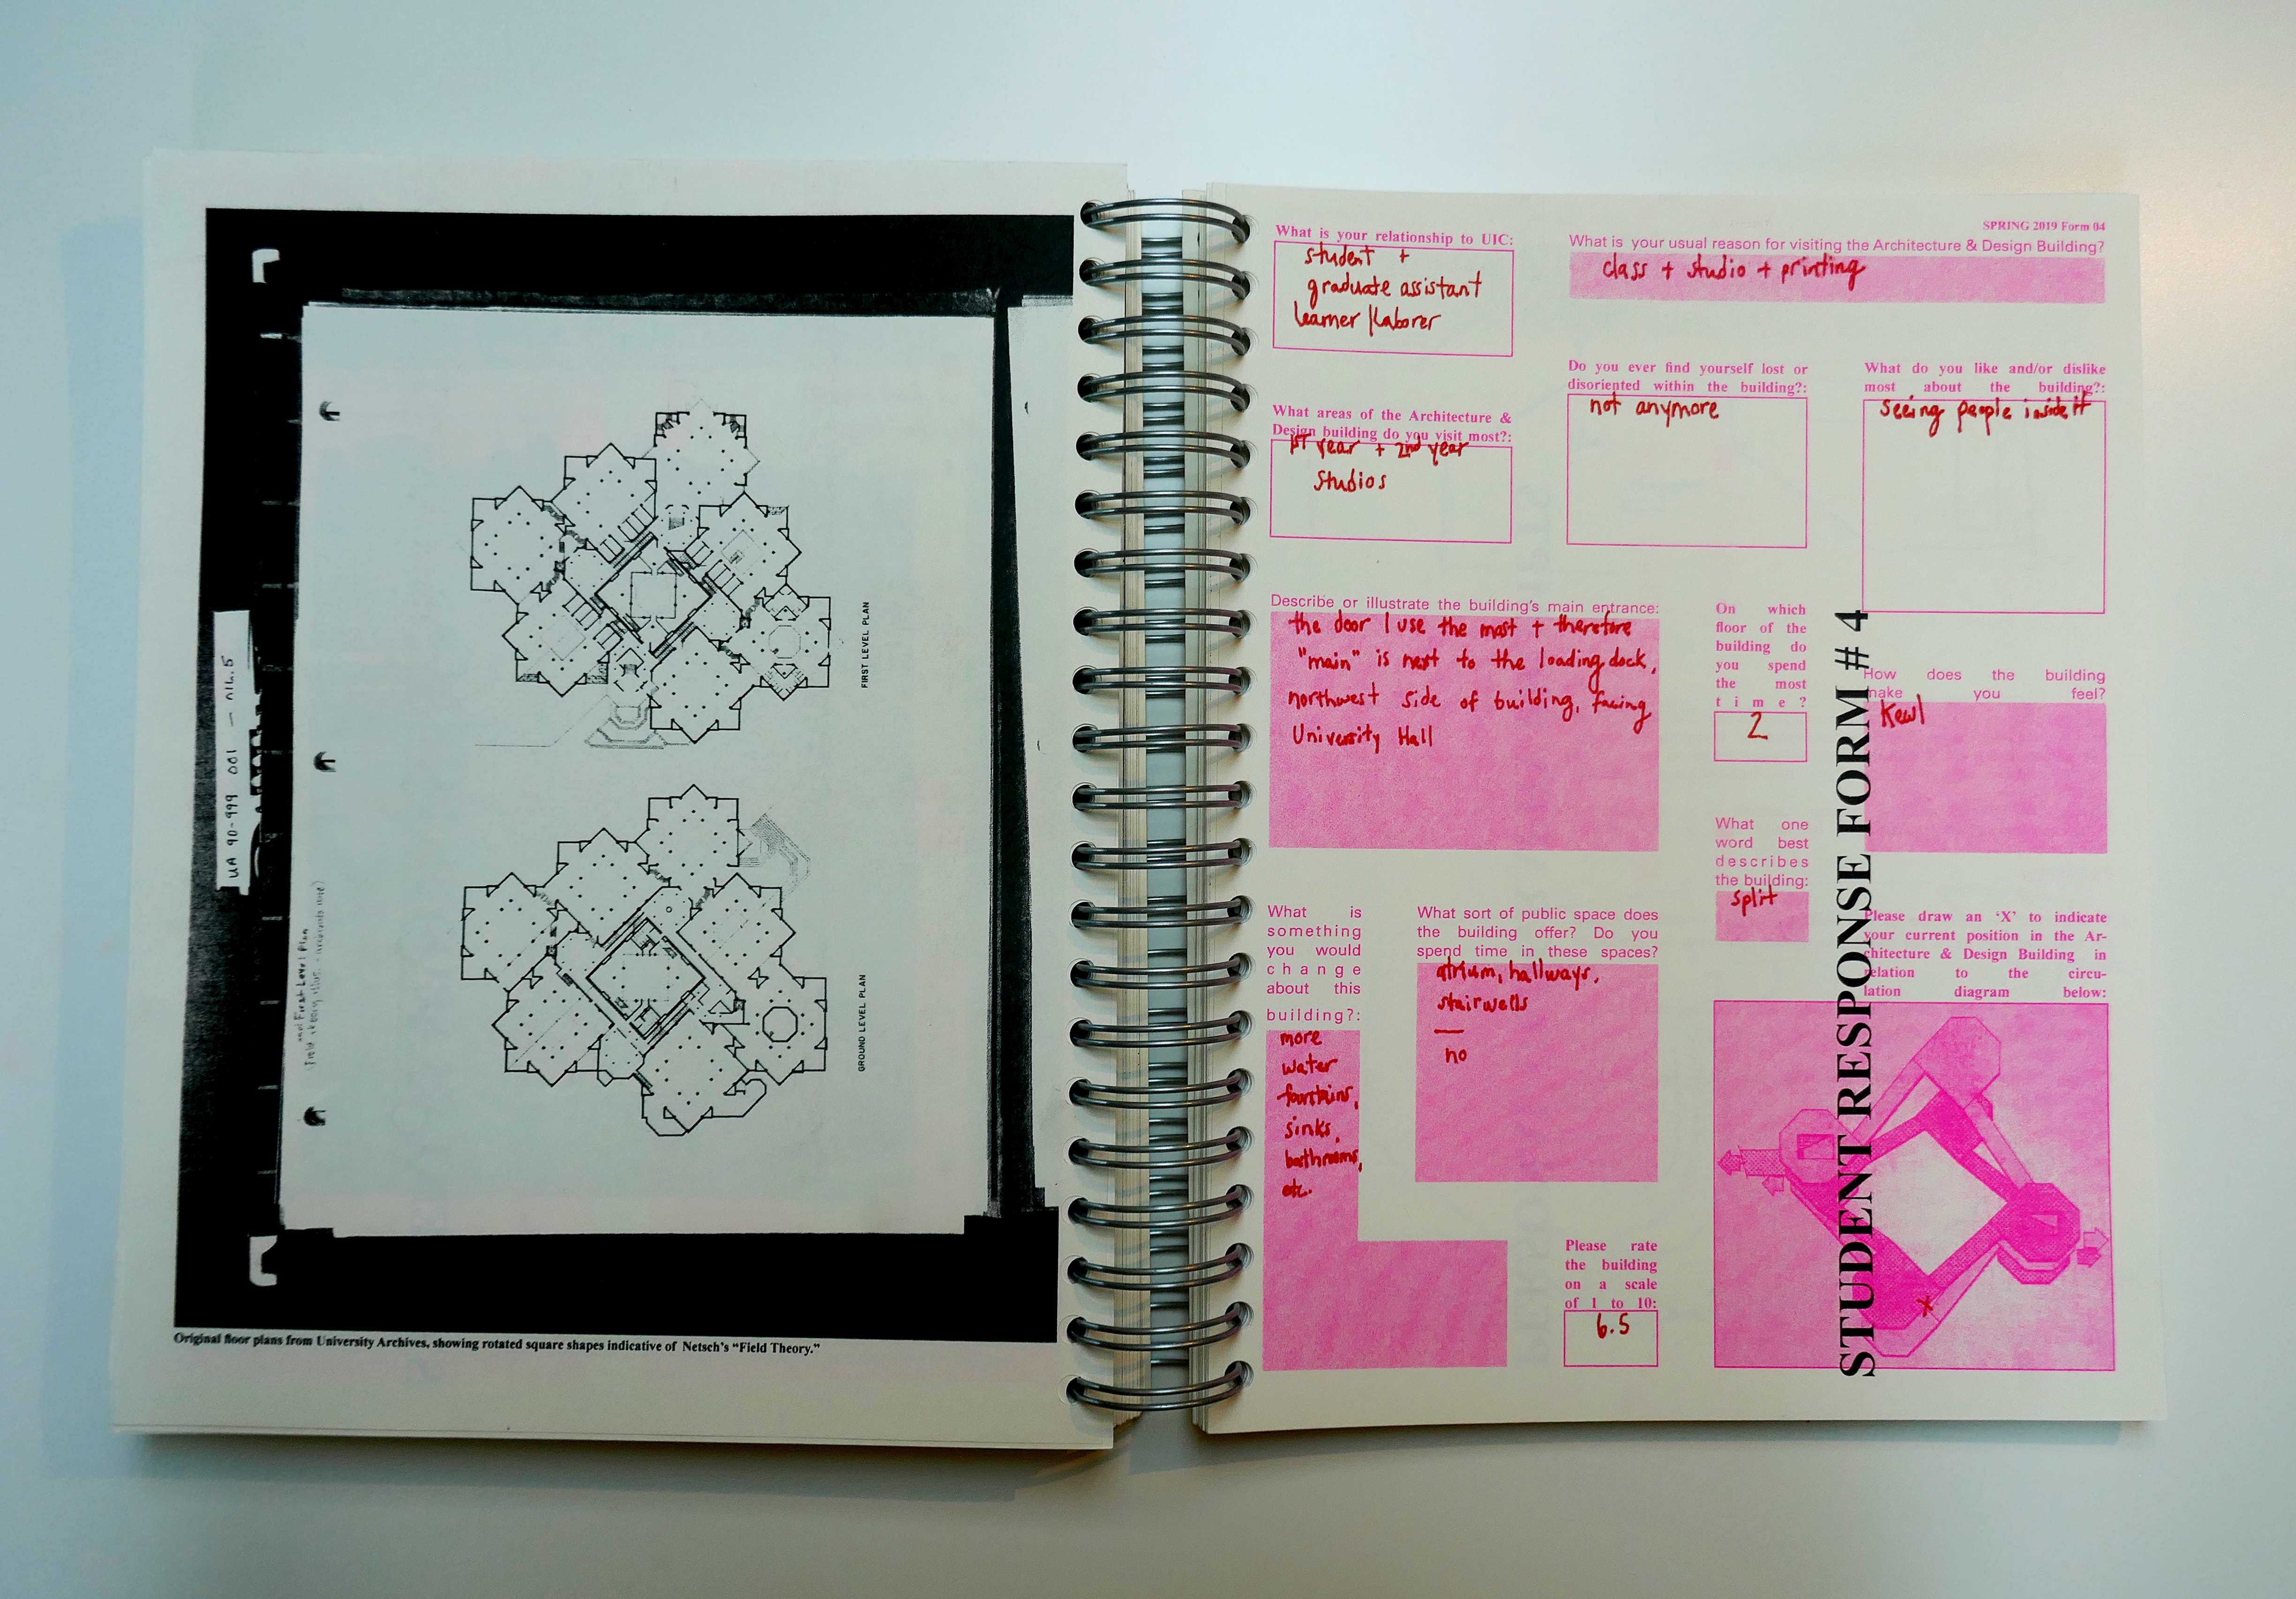 UA 90-999 001
and First Level Plan
FIRST LEVEL PLAN
GROUND LEVEL PLAN
Original floor plans from University Archives, showing rotated square shapes indicative of Netsch's “Field Theory.”
SPRING 2019 Form 04
What is your relationship to UIC:
student +
graduate assistant
learner/laborer
What is your usual reason for visiting the Architecture & Design Building?
class + studio + printing
What areas of the Architecture &
Design building do you visit most?:
1ST year + 2nd year
studios
Do you ever find yourself lost or
disoriented within the building?:
not anymore
What do you like and/or dislike
most about the building?:
seeing people inside it
Describe or illustrate the building's main entrance:
the door I use the most + therefore
"main" is next to the loading dock,
northwest side of building, facing
University Hall
On which
floor of the
building do
you spend
the most
time?
2
How does the building
make you feel?
kewl
What one
word best
describes
the building:
split
What is
something
you would
change
about this
building?:
more
water
fountains,
sinks,
bathrooms,
etc.
What sort of public space does
the building offer? Do you
spend time in these spaces?
atrium, hallways,
stairwells
—
no
Please rate
the building
on a scale
of 1 to 10:
6.5
Please draw an ‘X’ to indicate
your current position in the Ar-
chitecture & Design Building in
relation to the circu-
lation diagram below:
X
STUDENT RESPONSE FORM # 4